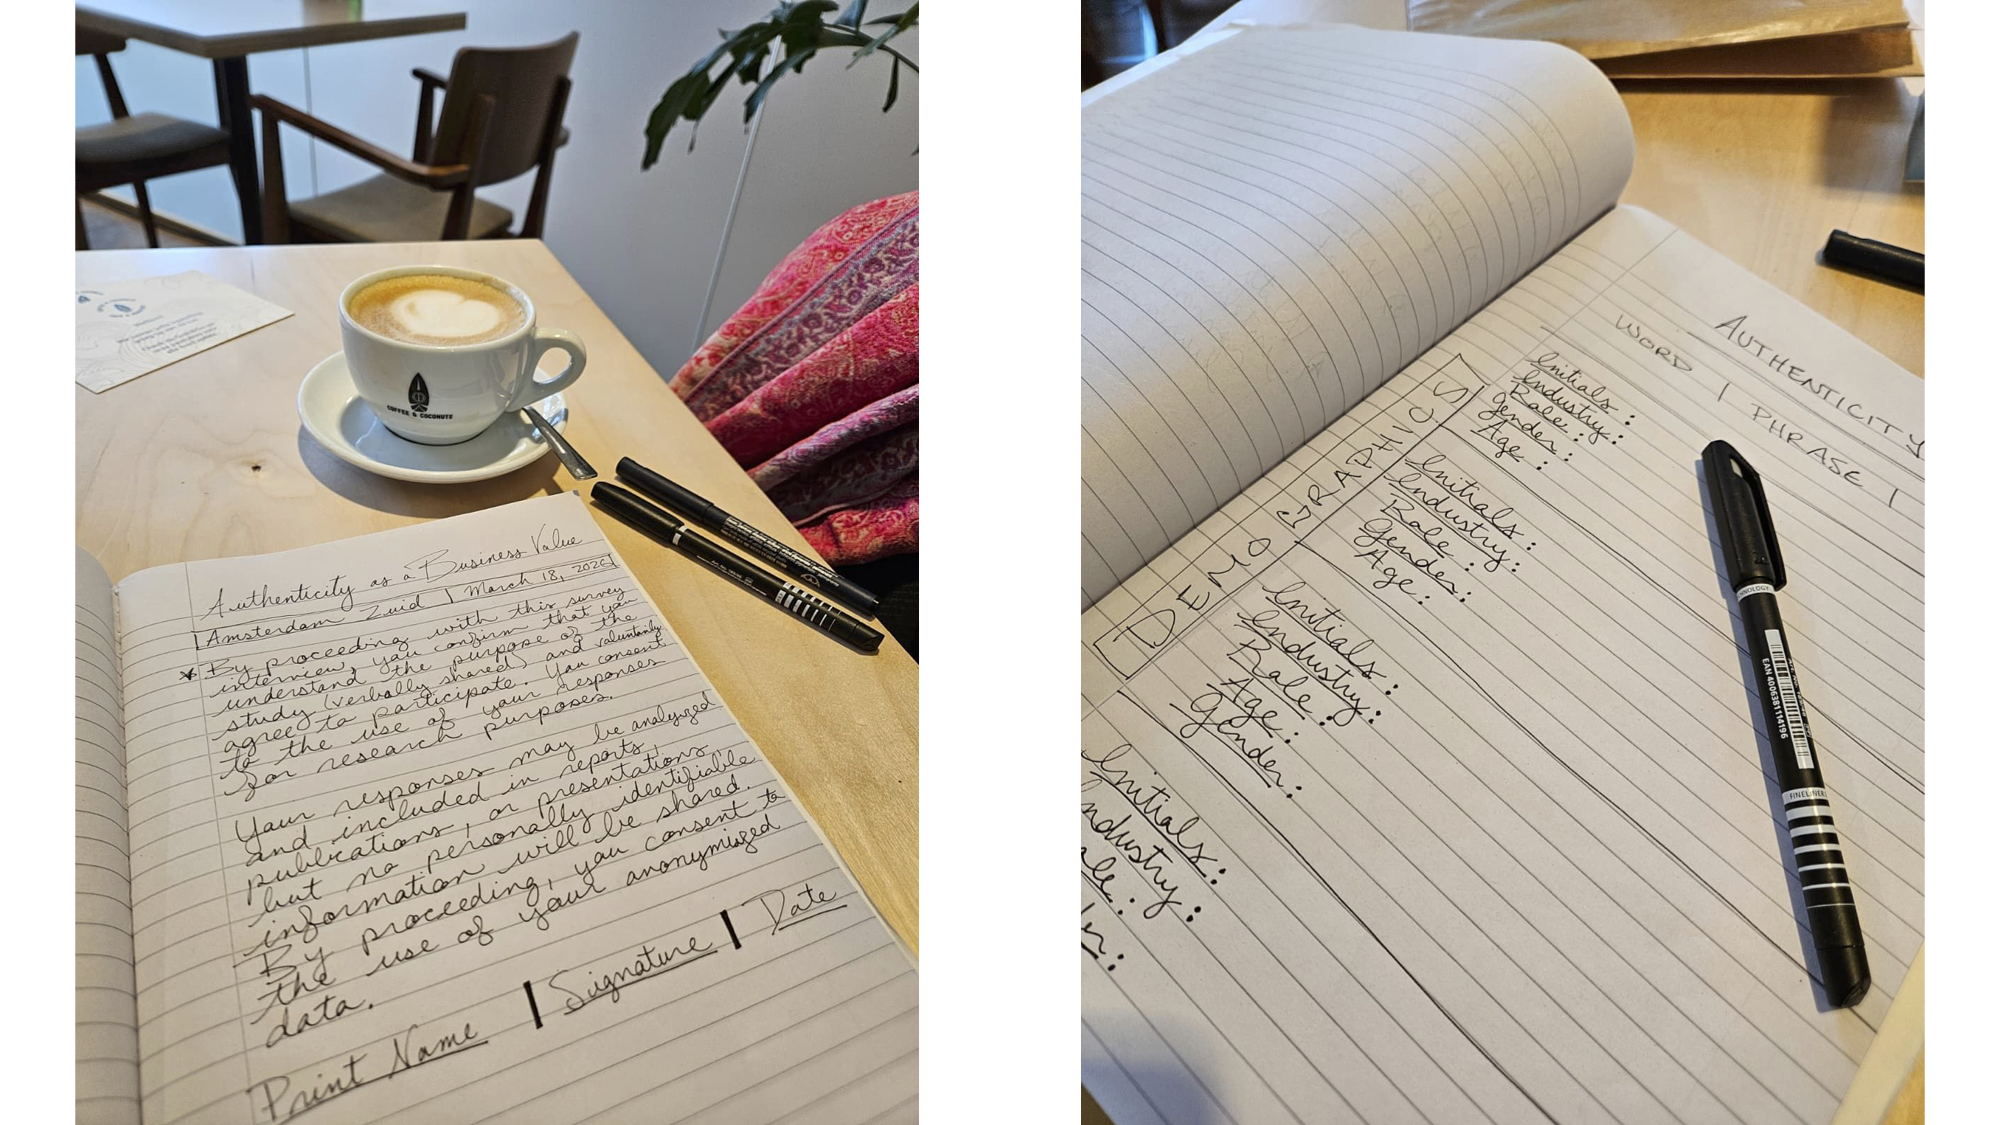 COFFEE & COCONUTS
Authenticity as a Business Value
Amsterdam Zuid | March 18, 2026
* By proceeding with this survey
interview, you confirm that you
understand the purpose of the
study (verbally shared) and voluntarily
agree to participate. You consent
to the use of your responses
for research purposes.
Your responses may be analyzed
and included in reports,
publications, or presentations,
but no personally identifiable
information will be shared.
By proceeding, you consent to
the use of your anonymized
data.
Print Name | Signature | Date
AUTHENTICITY
WORD | PHRASE |
DEMOGRAPHICS
Initials:
Industry:
Role:
Gender:
Age:
Initials:
Industry:
Role:
Gender:
Age:
Initials:
Industry:
Role:
Age:
Gender:
Initials:
ndustry:
le:
er:
EAN 4006381114196
FINELINER